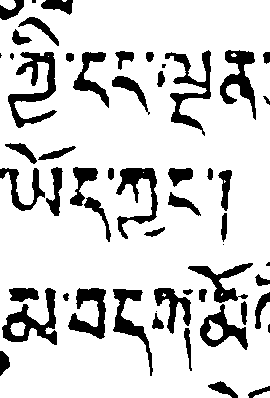 ཀྱི་དང་ལྡན
ཡོད་ཀྱང་།
མ་བདག་མོ